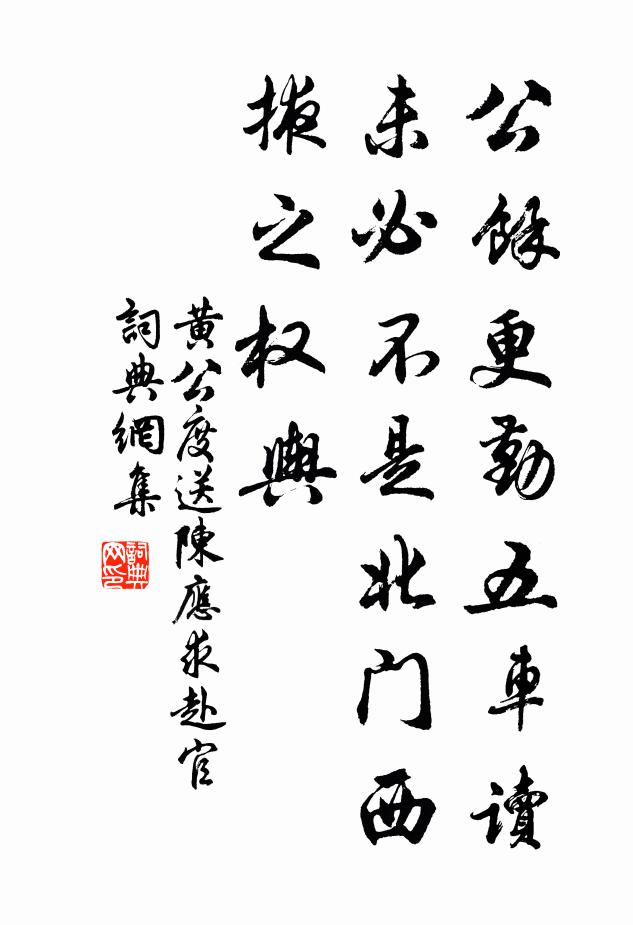 公餘更勤五車讀
未必不是北门西
掖之权輿
黄公度送陳應求赴官
詞典網集
詞典网印